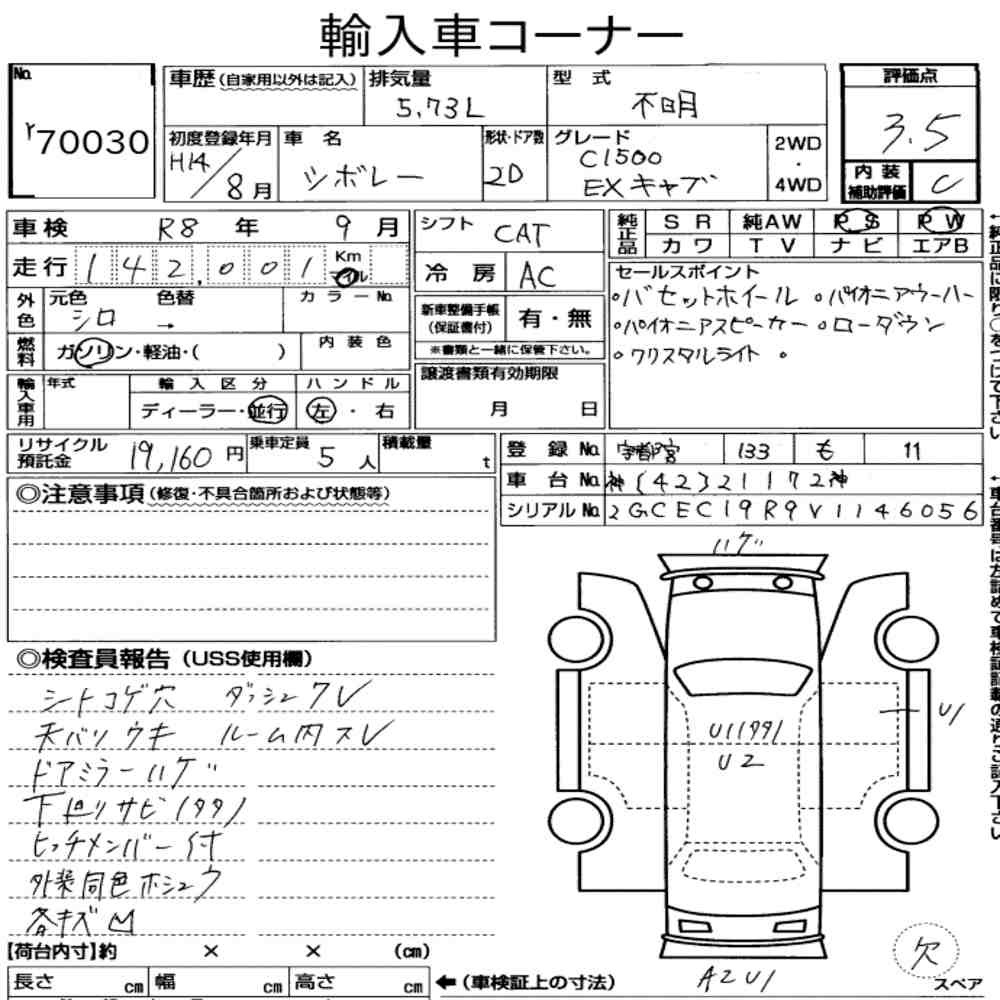 輸入車コーナー
No. r70030
車歴(自家用以外は記入) 排気量 5.73L 型式 不明
初度登録年月 H14/8月 車名 シボレー 形状・ドア数 2D グレード C1500 EXキャブ 2WD・4WD
評価点 3.5
内装補助評価 C
車検 R8年 9月
走行 142,001 Km マイル
外色 元色 シロ 色替 → カラーNo.
燃料 ガソリン・軽油・( ) 内装色
輸入車用 年式 輸入区分 ディーラー・並行 ハンドル 左・右
シフト CAT
冷房 AC
新車整備手帳(保証書付) 有・無
※書類と一緒に保管下さい。
譲渡書類有効期限 月 日
純正品 SR 純AW PS PW
カワ TV ナビ エアB
セールスポイント
○バセットホイール ○パイオニアウーハー
○パイオニアスピーカー ○ローダウン
○クリスタルライト ○
リサイクル預託金 19,160円 乗車定員 5人 積載量 t
登録No. 宇都宮 133 も 11
車台No. 神[42]21172神
シリアルNo. 2GCEC19R9V1146056
◎注意事項(修復・不具合箇所および状態等)
◎検査員報告(USS使用欄)
シートコゲ穴 ダッシュクレ
天バリウキ ルーム内スレ
ドアミラーハゲ
下廻りサビ(タタ)
ヒッチメンバー付
外装同色ホシュウ
各キズM
ハゲ
U1
U1(99)
U2
A2U1
欠
スペア
【荷台内寸】約 × × (cm)
長さ cm 幅 cm 高さ cm ←(車検証上の寸法)
←純正品に限り○をつけて下さい
←車台番号は左詰めで車検証記載の通りご記入下さい